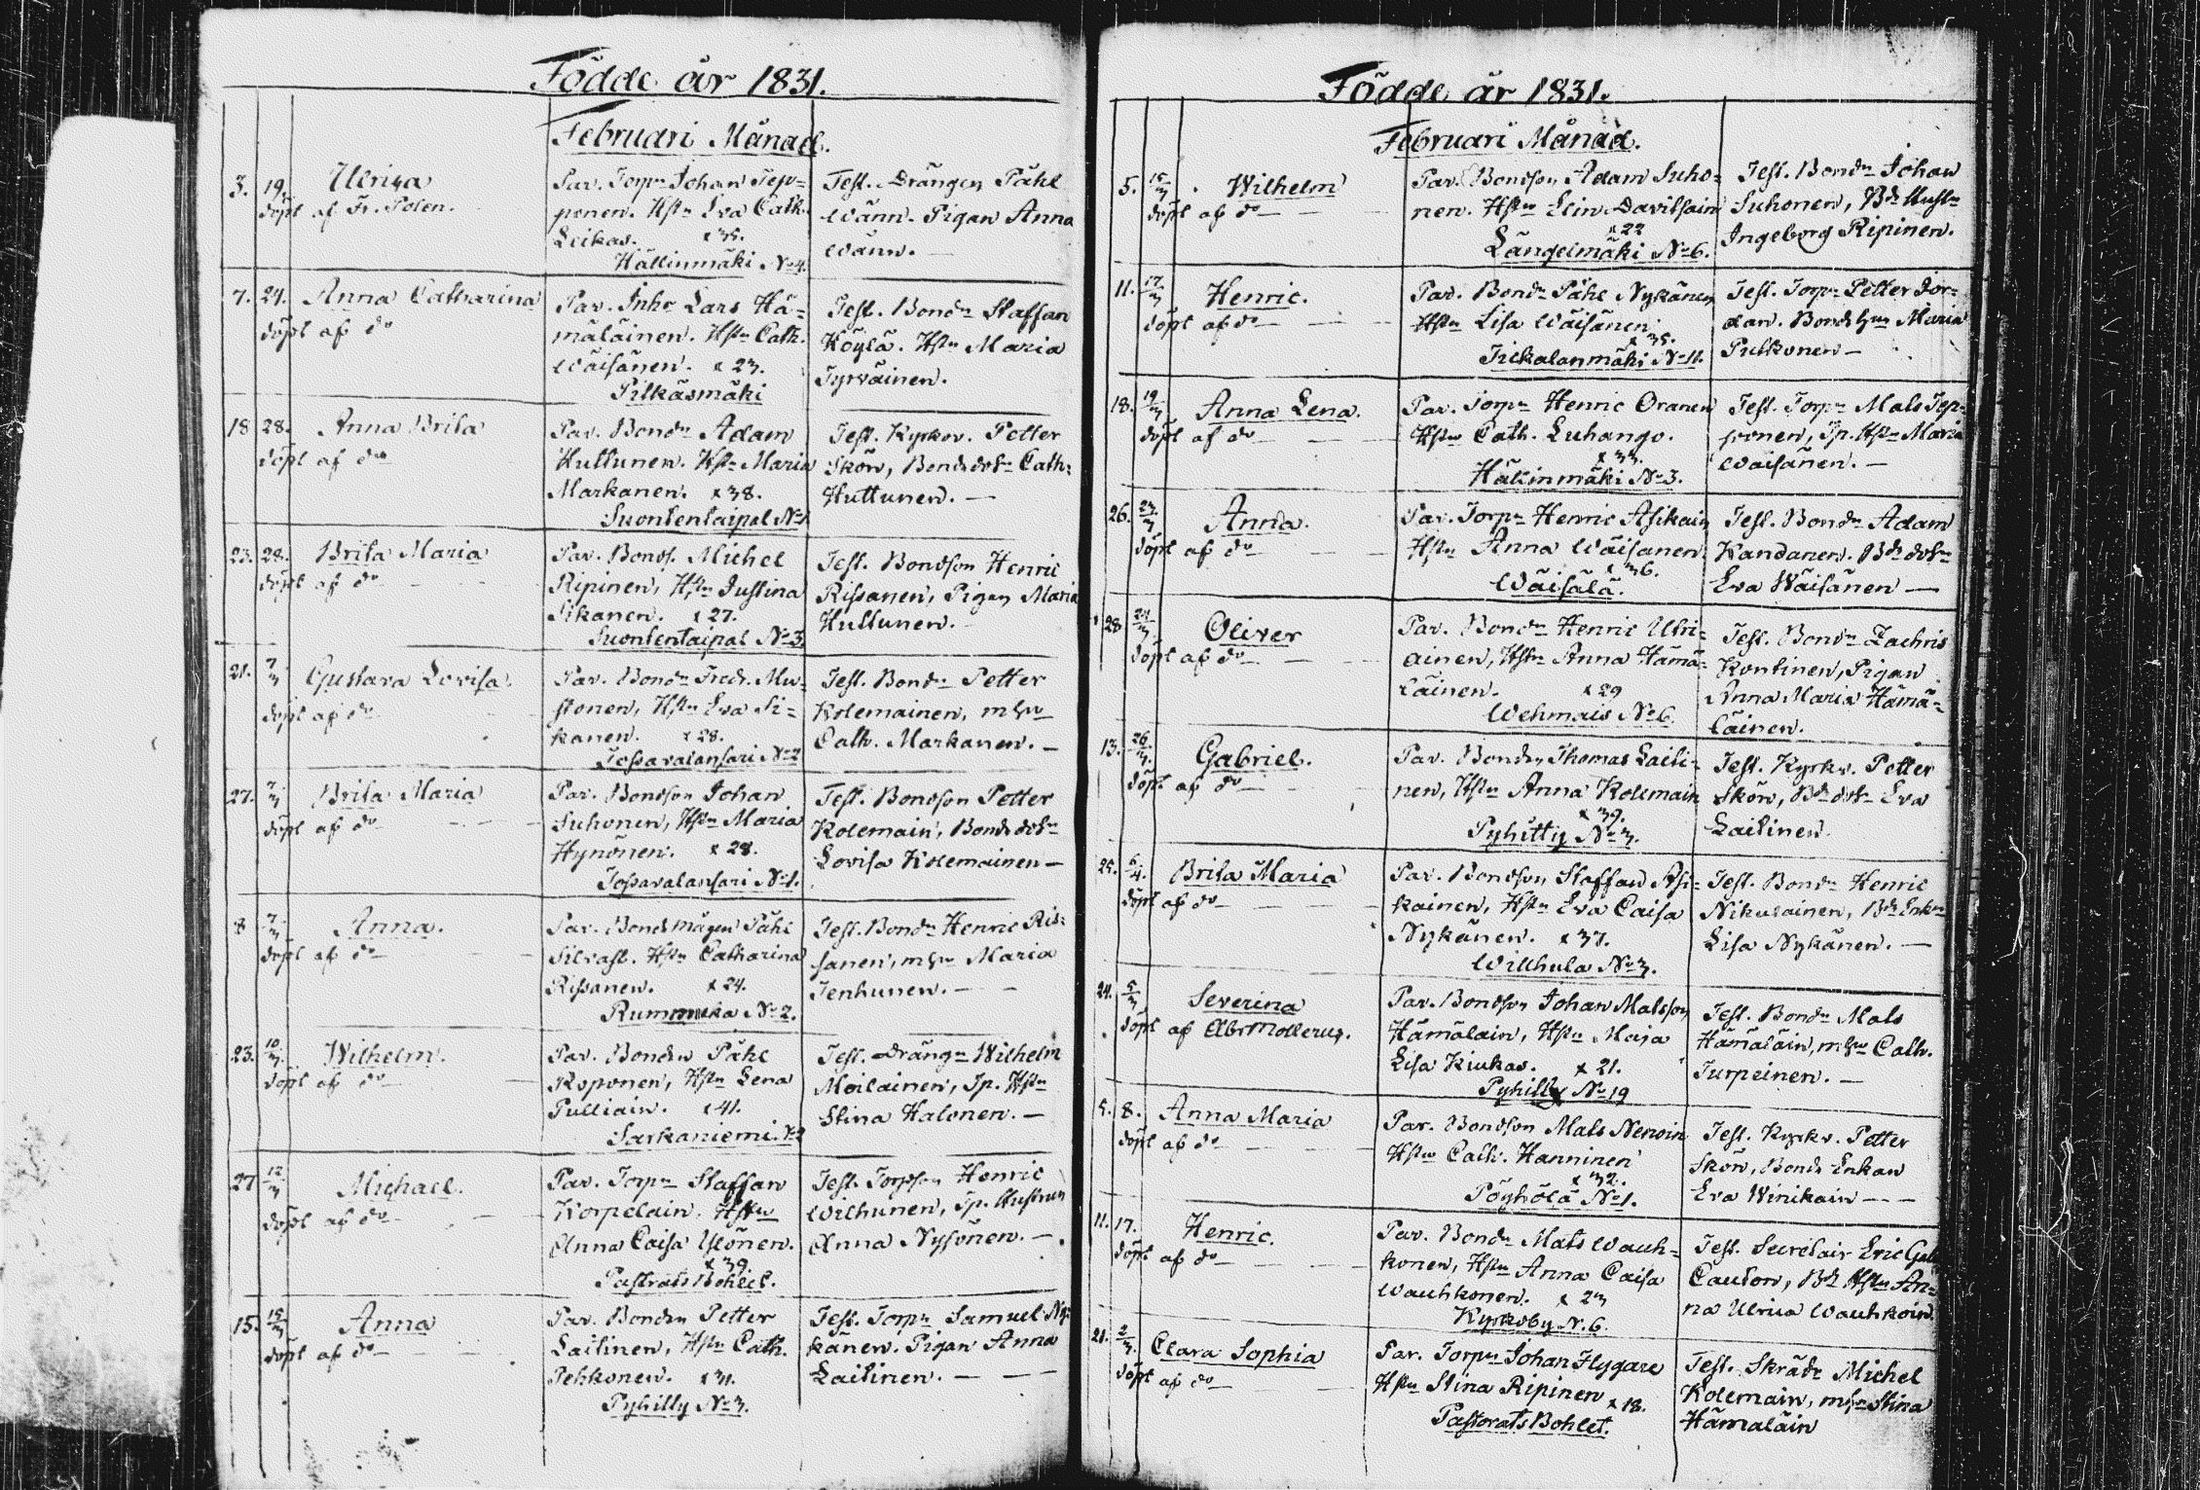 Födde år 1831.
Februari Månad.
3. 19. Ulrica
döpt af Fr. Polen.
Par. Torpn Johan Tep=
ponen. Hstn Eva Cath.
Leikas. x 35.
Hällinmäki No 4.
Test. Drängen Påhl
Wänn. Pigan Anna
Wänn.
7. 27. Anna Catharina
döpt af do
Par. Inhs Lars Hä=
mäläinen. Hstn Cath.
Wäisänen. x 23.
Pilkäsmäki
Test. Bondn Staffan
Köylä. Hstn Maria
Tyrwäinen.
18 28. Anna Brita
döpt af do
Par. Bondn Adam
Huttunen. Hstn Maria
Markanen. x 38.
Suontentaipal No 1
Test. Kyrkov. Petter
Skön, Bondedotn Cath:
Huttunen. —
23. 28. Brita Maria
döpt af do
Par. Bonds. Michel
Ripinen, Hstn Justina
Sikanen. x 27.
Suontentaipal No 3.
Test. Bondson Henric
Rissanen, Pigan Maria
Huttunen. —
21. 7/3 Gustava Lovisa
döpt af do
Par. Bondn Fredr. Mu=
stonen, Hstn Eva Si=
kanen. x 28.
Tossavalansari No 2
Test. Bondn Petter
Kolemainen, m hu
Cath. Markanen. —
27. 7/3 Brita Maria
döpt af do
Par. Bondson Johan
Suhonen, Hstn Maria
Hynönen. x 28.
Tossavalansari No 1.
Test. Bondson Petter
Kolemain, Bonde dotn
Lovisa Kolemainen —
8 7/3 Anna.
döpt af do
Par. Bondemågen Påhl
Silvast. Hstn Catharina
Rissanen. x 24.
Rummuka No 2.
Test. Bondn Henric Ris:
sanen, m hu Maria
Tenhunen. — —
23. 10/3 Wilhelm.
döpt af do
Par. Bonden Påhl
Koponen, Hstn Lena
Pulliain. x 41.
Sarkaniemi. No 2
Test. Drängn Wilhelm
Moilainen, Tp. Hstn
Stina Halonen. —
27 12/3 Michael.
döpt af do
Par. Torpn Staffan
Korpelain. Hstn
Anna Caisa Ylönen.
x 39.
Pastorats Bohlet.
Test. Torpson Henric
Wilhunen, Tp. Hustrun
Anna Nysönen. —
15. 15/3 Anna
döpt af do
Par. Bonden Petter
Laitinen, Hstn Cath.
Pehkonen. x 31.
Pyhitty No 3.
Test. Torpn Samuel Ny:
känen. Pigan Anna
Laitinen. — — —
Födde år 1831.
Februari Månad.
5. 15/3 Wilhelm
döpt af do
Par. Bondson Adam Suho=
nen. Hstn Elin Davitsain
x 22
Längelmäki No 6.
Test. Bondn Johan
Suhonen, Bde Hustn
Ingeborg Ripinen.
11. 17/3 Henric.
döpt af do
Par. Bondn Påhl Nykänen
Hstn Lisa Wäisänen
x 35.
Tirkalanmäki No 11.
Test. Torpn Petter Jor=
dan. Bonde hun Maria
Pulkonen —
18. 19/3 Anna Lena.
döpt af do
Par. Torpn Henric Oranen
Hstn Cath. Luhango.
x 33.
Hällinmäki No 3.
Test. Torpn Mats Tep=
ponen, Tp. Hstn Maria
Wäisänen. —
26. 23/3 Anna.
döpt af do
Par. Torpn Henric Asikain
Hstn Anna Wäisänen
x 36.
Wäisälä.
Test. Bondn Adam
Kandanen. Bde dotn
Eva Wäisänen —
28 24/3 Oliver
döpt af do
Par. Bondn Henric Utri=
ainen, Hstn Anna Hämä=
läinen. x 29
Wehmais No 6.
Test. Bondn Zachris
Kontinen, Pigan
Anna Maria Hämä=
läinen.
13. 26/3. Gabriel.
döpt af do
Par. Bonden Thomas Laiti=
nen, Hstn Anna Kolemain
x 39.
Pyhitty No 3.
Test. Kyrkv. Petter
Skön, Bde dotn Eva
Laitinen.
25. 6/4. Brita Maria
döpt af do
Par. Bondson Staffan Asi=
kainen, Hstn Eva Caisa
Nykänen. x 37.
Willhula No 3.
Test. Bondn Henric
Nikulainen, Bde Enkn
Lisa Nykänen. —
24. 5/3 Severina
döpt af Alb: Mollerus.
Par. Bondson Johan Matsson
Hämäläin, Hstn Maja
Lisa Kiukas. x 21.
Pyhitty No 19
Test. Bondn Mats
Hämäläin, m hu Cath.
Turpeinen. —
5. 8. Anna Maria
döpt af do
Par. Bondson Mats Nenoin
Hstn Cath. Hänninen
x 32.
Pöyhölä No 1.
Test. Kyrkv. Petter
Skön, Bonde Enkan
Eva Winikain — —
11. 17. Henric.
döpt af do
Par. Bondn Mats Wauh=
konen, Hstn Anna Caisa
Wauhkonen. x 23
Kyrkoby N. 6.
Test. Secretair Eric Gab
Cauton, Bde Hstn An=
na Ulrica Wauhkoin.
21. 2/3. Clara Sophia
döpt af do
Par. Torpn Johan Flygare
Hstn Stina Ripinen x 18.
Pastorats Bohlet.
Test. Skrädr Michel
Kolemain, m hu Stina
Hämäläin